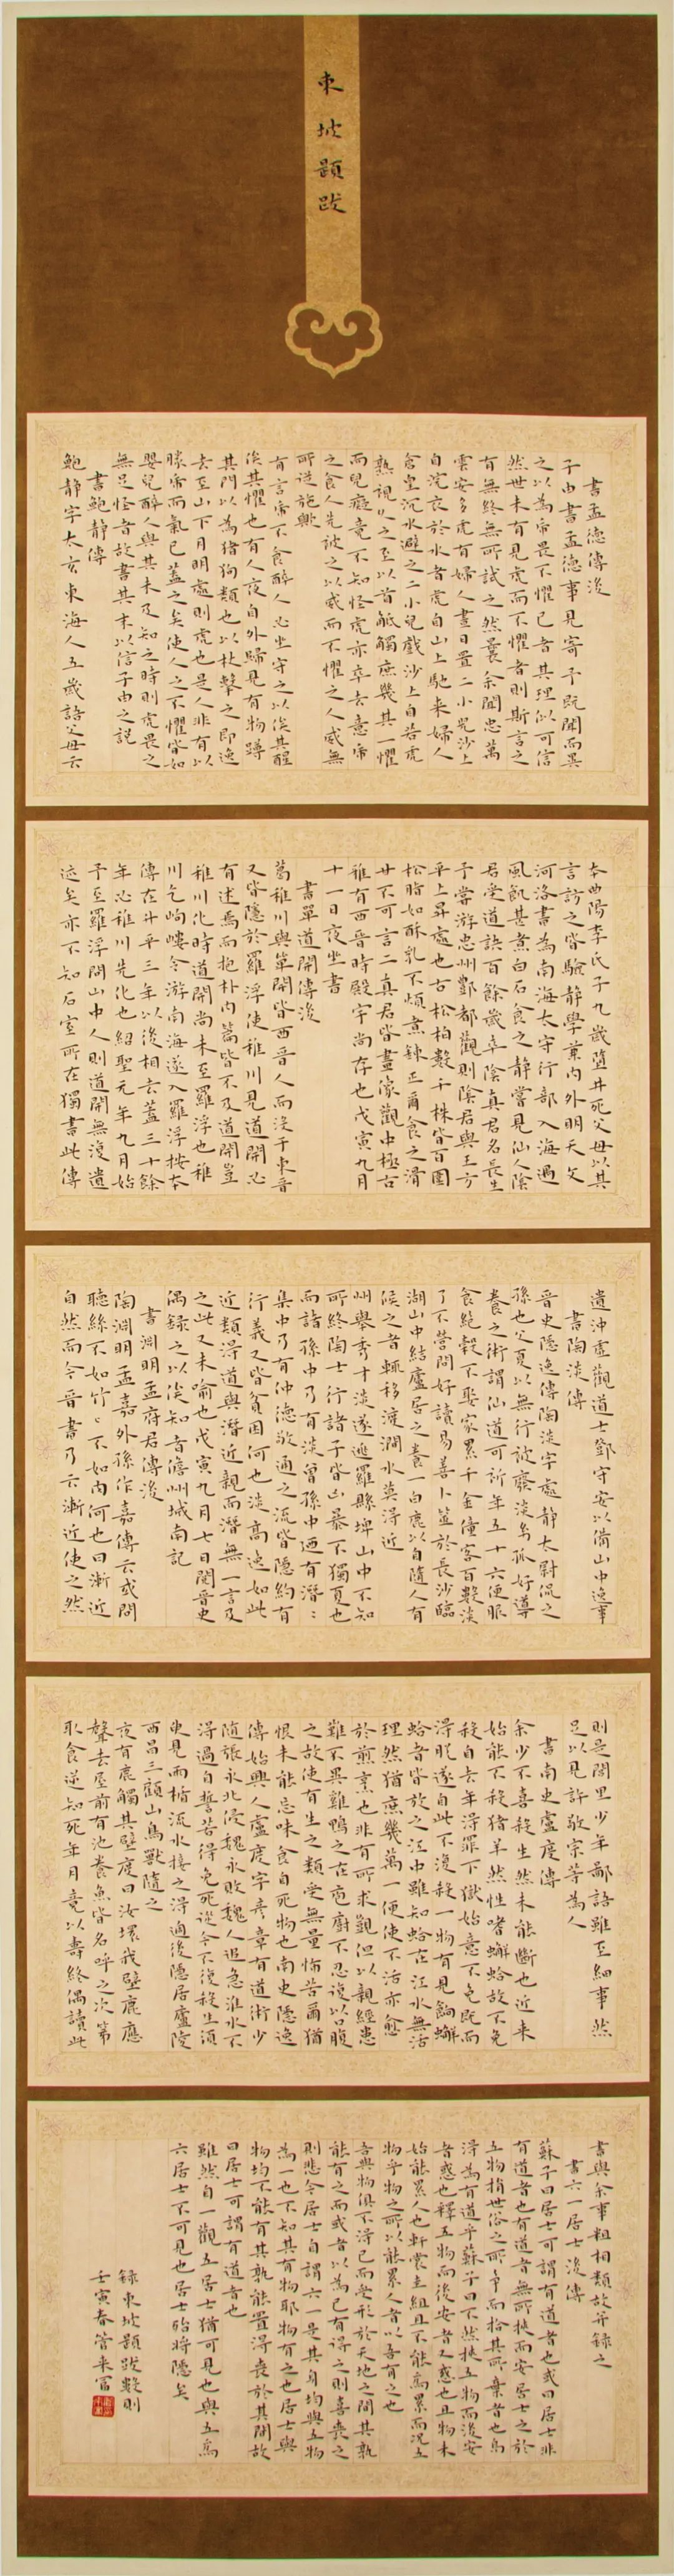 東坡題跋
書孟德傳後
子由書孟德事見寄予既聞而異
之以為虎畏不懼己者其理似可信
然世未有見虎而不懼者則斯言之
有無終無所試之然曩余聞忠萬
雲安多虎有婦人晝日置二小兒沙上
自浣衣於水者虎自山上馳來婦人
倉皇沉水避之二小兒戲沙上自若虎
熟視久之至以首觝觸庶幾其一懼
而兒癡竟不知怪虎亦卒去意虎
之食人先被之以威而不懼之人威無
所從施歟
有言虎不食醉人必坐守之以俟其醒
俟其懼也有人夜自外歸見有物蹲
其門以為猪狗類也以杖擊之即逸
去至山下月明處則虎也是人非有以
勝虎而氣已蓋之矣使人之不懼皆如
嬰兒醉人與其未及知之時則虎畏之
無足怪者故書其末以信子由之說
書鮑靜傳
鮑靜字太玄東海人五歲語父母云
本曲陽李氏子九歲墮井死父母以其
言訪之皆驗靜學兼內外明天文
河洛書為南海太守行部入海遇
風飢甚煮白石食之靜嘗見仙人陰
君受道訣百餘歲卒陰真君名長生
予嘗游忠州酆都觀則陰君與王方
平上昇處也古松柏數千株皆百圍
松脂如酥乳不煩煮鍊正爾食之滑
甘不可言二真君皆畫像觀中極古
雅有西晉時殿宇尚存也戊寅九月
十一日夜坐書
書單道開傳後
葛稚川與單開皆西晉人而沒于東晉
又皆隱於羅浮使稚川見道開必
有述焉而抱朴內篇皆不及道開豈
稚川化時道開尚未至羅浮也稚
川乞岣嶁令游南海遂入羅浮按本
傳在升平三年以後相去蓋三十餘
年必稚川先化也紹聖元年九月始
予至羅浮問山中人則道開無復遺
迹矣亦不知石室所在獨書此傳
遺沖虛觀道士鄧守安以備山中逸事
書陶淡傳
晉史隱逸傳陶淡字處靜太尉侃之
孫也父夏以無行被廢淡幼孤好導
養之術謂仙道可祈年五十六便服
食絕穀不娶家累千金僮客百數淡
了不營問好讀易善卜筮於長沙臨
湖山中結廬居之養一白鹿以自隨人有
候之者輒移渡澗水莫得近
州舉秀才淡遂逃羅縣埤山中不知
所終陶士行諸子皆凶暴不獨夏也
而諸孫中乃有淡曾孫中迺有潛〻
集中乃有仲德敬通之流皆隱約有
行義又皆貧困何也淡高逸如此
近類得道與潛近親而潛無一言及
之此又未喻也戊寅九月七日閱晉史
偶錄之以俟知者儋州城南記
書淵明孟府君傳後
陶淵明孟嘉外孫作嘉傳云或問
聽絲不如竹〻不如肉何也曰漸近
自然而今晉書乃云漸近使之然
則是閭里少年鄙語雖至細事然
足以見許敬宗等為人
書南史盧度傳
余少不喜殺生然未能斷也近來
始能不殺猪羊然性嗜蠏蛤故不免
殺自去年得罪下獄始意不免既而
得脫遂自此不復殺一物有見餉蠏
蛤者皆放之江中雖知蛤在江水無活
理然猶庶幾萬一便使不活亦愈
於煎烹也非有所求覬但以親經患
難不異雞鴨之在庖廚不忍復以口腹
之故使有生之類受無量怖苦爾猶
恨未能忘味食自死物也南史隱逸
傳始興人盧度字彥章有道術少
隨張永北侵魏永敗魏人追急淮水不
得過自誓若得免死從今不復殺生須
臾見兩楯流水接之得過後隱居廬陵
西昌三顧山鳥獸隨之
夜有鹿觸其壁度曰汝壞我壁鹿應
聲去屋前有池養魚皆名呼之次第
取食逆知死年月竟以壽終偶讀此
書與余事粗相類故并錄之
書六一居士後傳
蘇子曰居士可謂有道者也或曰居士非
有道者也有道者無所挾而安居士之於
五物捐世俗之所爭而拾其所棄者也烏
得為有道乎蘇子曰不然挾五物而後安
者惑也釋五物而後安者又惑也且物未
始能累人也軒裳圭組且不能為累而況五
物乎物之所以能累人者以吾有之也
吾與物俱不得已而受形於天地之間其孰
能有之而或者以為己有得之則喜喪之
則悲今居士自謂六一是其身均與五物
為一也不知其有物耶物有之也居士與
物均不能有其孰能置得喪於其間故
曰居士可謂有道者也
雖然自一觀五居士猶可見也與五為
六居士不可見也居士殆將隱矣
錄東坡題跋數則
壬寅春管來富